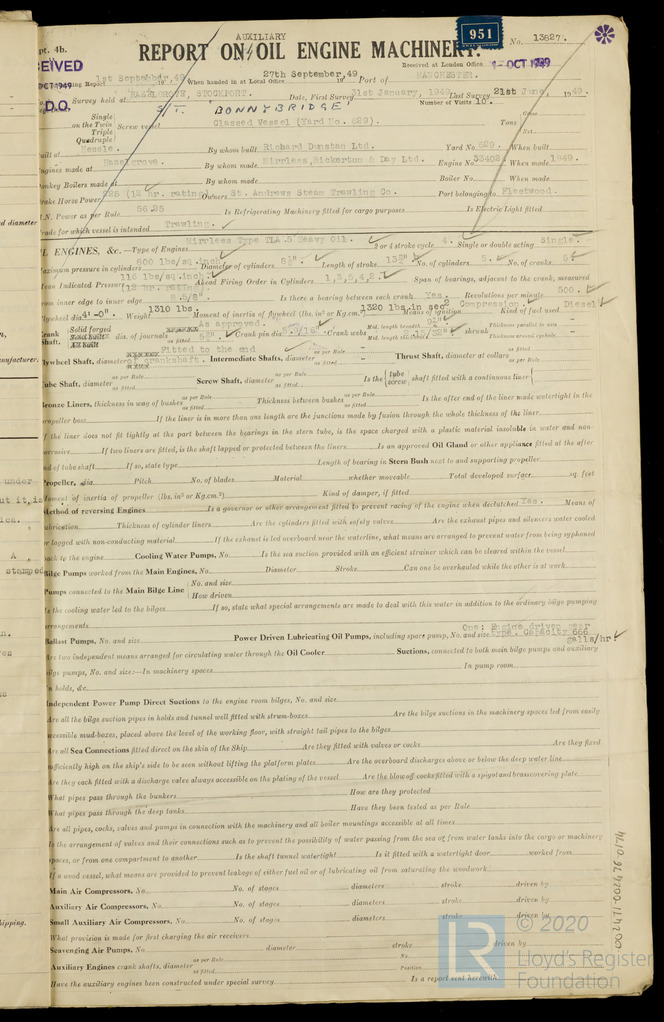 pt. 4b.
AUXILIARY
951
REPORT ON OIL ENGINE MACHINERY.
No. 13827.
Received at London Office
1 - OCT 1949
1st September, 49 When handed in at Local Office 27th September, 49 Port of MANCHESTER.
Survey held at HAZELGROVE, STOCKPORT. Date, First Survey 31st January, 1949 Last Survey 21st June, 1949.
Number of Visits 10.
S/T. 'BONNYBRIDGE'
Single
on the Twin
Triple
Quadruple
Screw vessel
Classed Vessel (Yard No. 629).
Tons
Gross
Net
Hessle. By whom built Richard Dunstan Ltd. Yard No. 629. When built
Engines made at Hazelgrove. By whom made Mirrlees, Bickerton & Day Ltd. Engine No. 33402 When made 1949.
Donkey Boilers made at By whom made Boiler No. When made
Brake Horse Power (12 hr. rating) Owners St. Andrews Steam Trawling Co. Port belonging to Fleetwood.
N. Power as per Rule 56.25 Is Refrigerating Machinery fitted for cargo purposes Is Electric Light fitted
Trade for which vessel is intended Trawling.
OIL ENGINES, &c.—Type of Engines Mirrlees Type TLA.5 Heavy Oil. 2 or 4 stroke cycle 4. Single or double acting Single.
Maximum pressure in cylinders 600 lbs/sq.inch Diameter of cylinders Length of stroke No. of cylinders 5. No. of cranks 5
Mean Indicated Pressure 110 lbs/sq.inch (12 hr. rating) Ahead Firing Order in Cylinders 1,3,5,4,2. Span of bearings, adjacent to the crank, measured
from inner edge to inner edge Is there a bearing between each crank Yes. Revolutions per minute 500.
Flywheel dia. 4'-0". Weight 1310 lbs. Moment of inertia of flywheel (lbs. in² or Kg.cm.²) Means of ignition Compression. Kind of fuel used Diesel
Crank Shaft, Solid forged dia. of journals as fitted As approved. Crank pin dia. Crank webs Mid. length breadth Mid. length thickness shrunk Thickness parallel to axis Thickness around eyehole
Flywheel Shaft, diameter Fitted to the end of crankshaft. Intermediate Shafts, diameter as per Rule as fitted Thrust Shaft, diameter at collars as per Rule as fitted
Tube Shaft, diameter as per Rule as fitted Screw Shaft, diameter as per Rule as fitted Is the tube screw shaft fitted with a continuous liner
Bronze Liners, thickness in way of bushes as per Rule as fitted Thickness between bushes as per Rule as fitted Is the after end of the liner made watertight in the
propeller boss If the liner is in more than one length are the junctions made by fusion through the whole thickness of the liner
If the liner does not fit tightly at the part between the bearings in the stern tube, is the space charged with a plastic material insoluble in water and non-
corrosive If two liners are fitted, is the shaft lapped or protected between the liners Is an approved Oil Gland or other appliance fitted at the after
end of tube shaft If so, state type Length of bearing in Stern Bush next to and supporting propeller
Propeller, dia. Pitch No. of blades Material whether moveable Total developed surface sq. feet
Moment of inertia of propeller (lbs. in² or Kg.cm.²) Kind of damper, if fitted
Method of reversing Engines Is a governor or other arrangement fitted to prevent racing of the engine when declutched Yes. Means of
lubrication Thickness of cylinder liners Are the cylinders fitted with safety valves Are the exhaust pipes and silencers water cooled
or lagged with non-conducting material If the exhaust is led overboard near the waterline, what means are arranged to prevent water from being syphoned
back to the engine Cooling Water Pumps, No. Is the sea suction provided with an efficient strainer which can be cleared within the vessel
Bilge Pumps worked from the Main Engines, No. Diameter Stroke Can one be overhauled while the other is at work
Pumps connected to the Main Bilge Line No. and size
How driven
Is the cooling water led to the bilges If so, state what special arrangements are made to deal with this water in addition to the ordinary bilge pumping
arrangements
Ballast Pumps, No. and size Power Driven Lubricating Oil Pumps, including spare pump, No. and size One: Engine driven gear type. Capacity 666 galls/hr.
Are two independent means arranged for circulating water through the Oil Cooler Suctions, connected to both main bilge pumps and auxiliary
bilge pumps, No. and size:—In machinery spaces In pump room
In holds, &c.
Independent Power Pump Direct Suctions to the engine room bilges, No. and size
Are all the bilge suction pipes in holds and tunnel well fitted with strum-boxes Are the bilge suctions in the machinery spaces led from easily
accessible mud-boxes, placed above the level of the working floor, with straight tail pipes to the bilges
Are all Sea Connections fitted direct on the skin of the Ship Are they fitted with valves or cocks Are they fixed
sufficiently high on the ship's side to be seen without lifting the platform plates Are the overboard discharges above or below the deep water line
Are they each fitted with a discharge valve always accessible on the plating of the vessel Are the blow off cocks fitted with a spigot and brass covering plate
What pipes pass through the bunkers How are they protected
What pipes pass through the deep tanks Have they been tested as per Rule
Are all pipes, cocks, valves and pumps in connection with the machinery and all boiler mountings accessible at all times
Is the arrangement of valves and their connections such as to prevent the possibility of water passing from the sea or from water tanks into the cargo or machinery
spaces, or from one compartment to another Is the shaft tunnel watertight Is it fitted with a watertight door worked from
If a wood vessel, what means are provided to prevent leakage of either fuel oil or of lubricating oil from saturating the woodwork
Main Air Compressors, No. No. of stages diameters stroke driven by
Auxiliary Air Compressors, No. No. of stages diameters stroke driven by
Small Auxiliary Air Compressors, No. No. of stages diameters stroke driven by
What provision is made for first charging the air receivers
Scavenging Air Pumps, No. diameter stroke driven by
Auxiliary Engines crank shafts, diameter as per Rule as fitted No. Position
Have the auxiliary engines been constructed under special survey Is a report sent herewith
002471-002476-0174
© 2020
LR
Lloyd's Register
Foundation